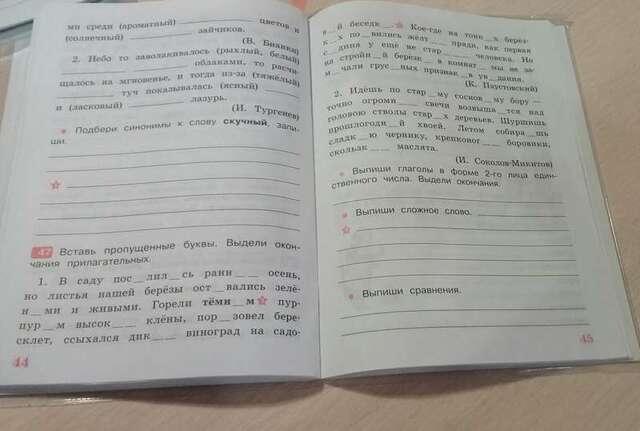 ми среди (ароматный) ____ цветов и
(солнечный) ____ зайчиков.
(В. Бианки)
2. Небо то заволакивалось (рыхлый, белый)
____ облаками, то расчи-
щалось на мгновенье, и тогда из-за (тяжёлый)
____ туч показывалась (ясный) ____
и (ласковый) ____ лазурь.
(И. Тургенев)
Подбери синонимы к слову скучный, запи-
ши.
47 Вставь пропущенные буквы. Выдели окон-
чания прилагательных.
1. В саду пос__лил__сь рани____ осень,
но листья нашей берёзы ост__вались зелё-
н__ми и живыми. Горели тёми__м пур-
пур__м высок____ клёны, пор__зовел бере-
склет, ссыхался дик____ виноград на садо-
44
в__й беседк__. Кое-где на тонк__х берёз-
к__х по__вились жёлт____ пряди, как первая
с__дина у ещё не стар____ человека. Но
на стройн__й берёзк__ в комнат__ мы не за-
м__чали грус__ных признак__в ув__дания.
(К. Паустовский)
2. Идёшь по стар__му соснов__му бору —
точно огромн____ свечи возвыша__тся над
головою стволы стар__х деревьев. Шуршишь
прошлогодн__й хвоей. Летом собира__шь
сладк__ю чернику, крепконог____ боровики,
скользк____ маслята.
(И. Соколов-Микитов)
Выпиши глаголы в форме 2-го лица един-
ственного числа. Выдели окончания.
Выпиши сложное слово.
Выпиши сравнения.
45